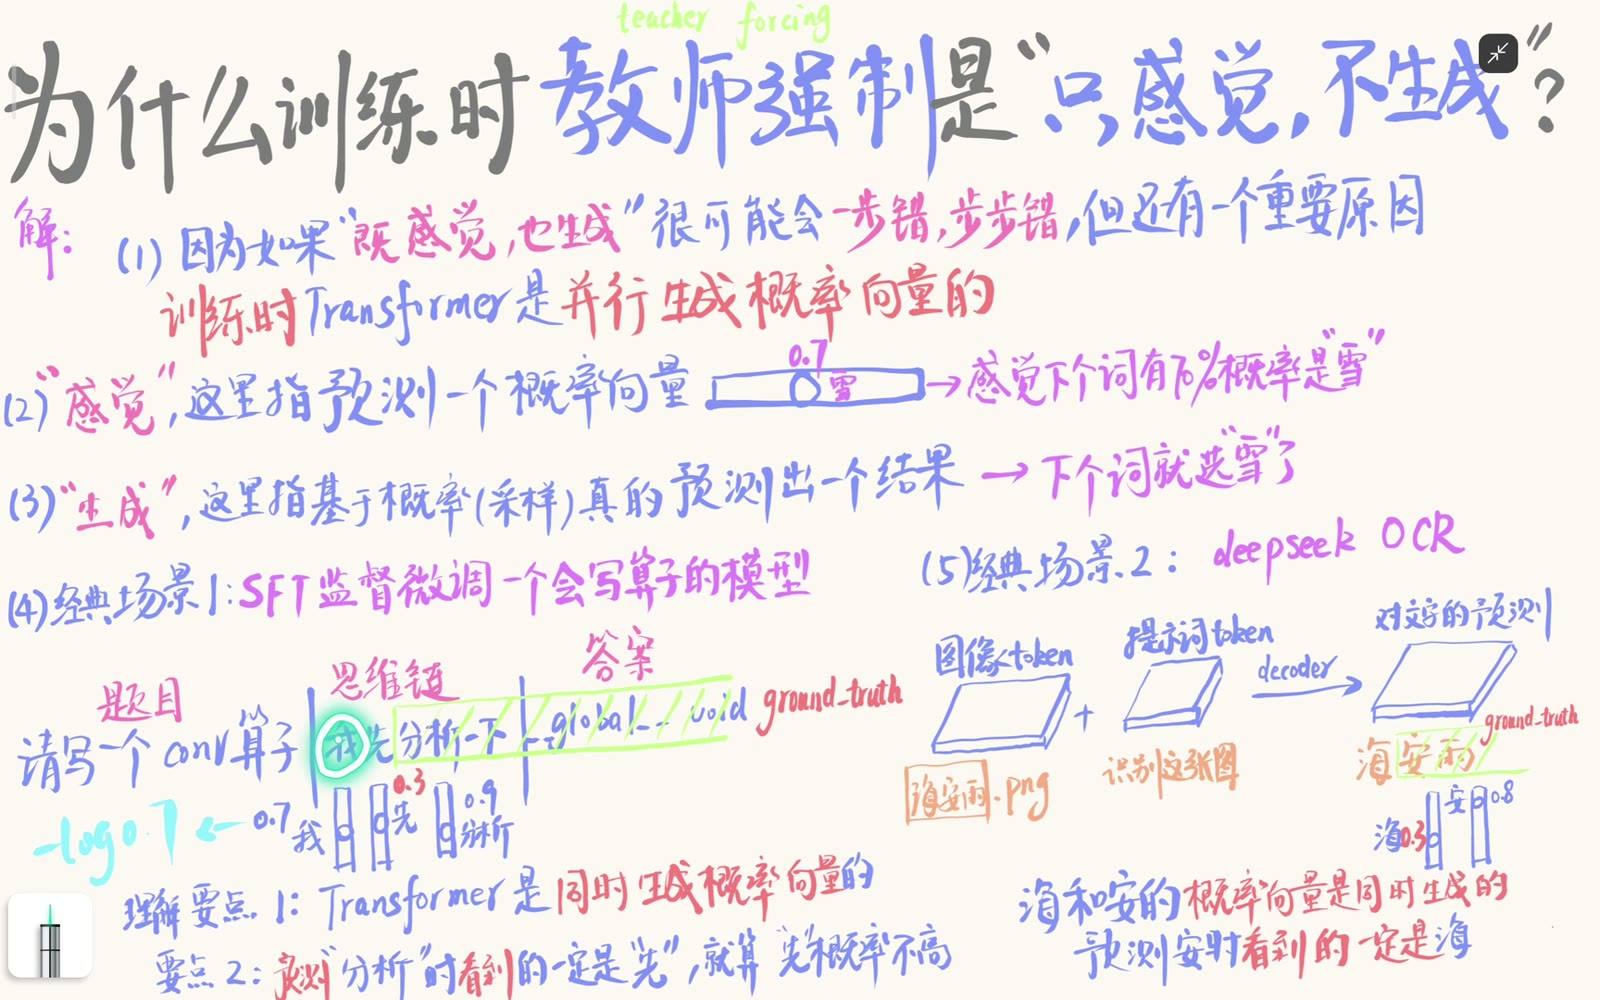 teacher forcing
为什么训练时教师强制是“只感觉，不生成”？
解：(1) 因为如果“既感觉，也生成”很可能会一步错，步步错，但还有一个重要原因
训练时Transformer是并行生成概率向量的
(2)“感觉”，这里指预测一个概率向量 0.7 雪 →感觉下个词有70%概率是“雪”
(3)“生成”，这里指基于概率(采样)真的预测出一个结果 → 下个词就选“雪”了
(4)经典场景1：SFT监督微调一个会写算子的模型
题目 思维链 答案
请写一个conv算子 我先分析一下 __global__ void ground_truth
-log0.7 ← 0.7 我 0.3 先 0.9 分析
理解要点1：Transformer是同时生成概率向量的
要点2：预测“分析”时看到的一定是“先”，就算“先”概率不高
(5)经典场景2：deepseek OCR
图像token + 提示词token decoder → 对文字的预测
海安雨.png 识别这张图 海安雨 ground_truth
海0.3 安 0.8
海和安的概率向量是同时生成的
预测安时看到的一定是海